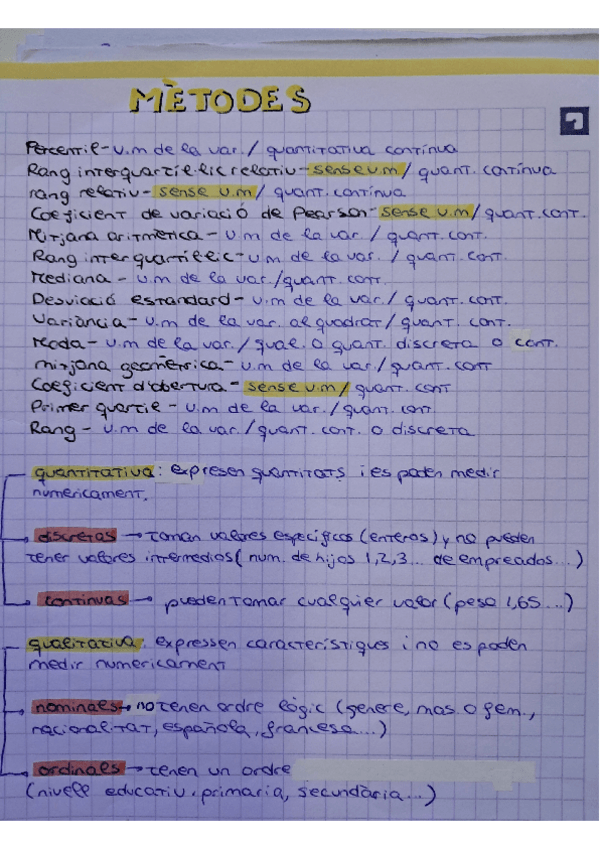 MÈTODES
Percentil - u.m de la var. / quantitativa contínua
Rang interquartíl·lic relatiu - sense u.m / quant. contínua
rang relatiu - sense u.m / quant. contínua
Coeficient de variació de Pearson - sense u.m / quant. cont.
Mitjana aritmètica - u.m de la var. / quant. cont.
Rang interquartíl·lic - u.m de la var. / quant. cont.
Mediana - u.m de la var. / quant. cont.
Desviació estandard - u.m de la var. / quant. cont.
Variància - u.m de la var. al quadrat / quant. cont.
Moda - u.m de la var. / qual. o quant. discreta o cont.
mitjana geomètrica - u.m de la var. / quant. cont
Coeficient d'obertura - sense u.m / quant. cont
Primer quartil - u.m de la var. / quant. cont.
Rang - u.m de la var. / quant. cont. o discreta
quantitativa: expresen quantitats i es poden medir
numericament.
discretas → toman valores específicos (enteros) y no pueden
tener valores intermedios (num. de hijos 1,2,3... de empleados...)
continuas → pueden tomar cualquier valor (peso 1,65...)
qualitativa: expressen característiques i no es poden
medir numericament
nominals → no tenen ordre lògic (genere, mas. o fem.,
nacionalitat, española, francesa...)
ordinals → tenen un ordre
(nivell educatiu. primaria, secundària...)